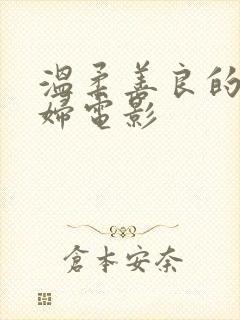 温柔善良的
婦電影
倉本安奈